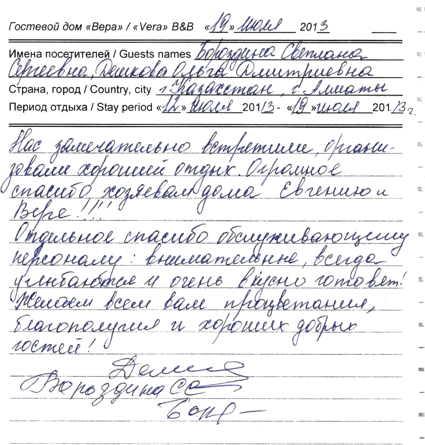 Гостевой дом «Вера» / «Vera» B&B «19» июля 2013
Имена посетителей / Guests names Бороздина Светлана
Сергеевна, Дешкова Ольга Дмитриевна
Страна, город / Country, city г. Казахстан г. Алматы
Период отдыха / Stay period «12» июля 2013 - «19» июля 2013 г.
Нас замечательно встретили, органи-
зовали хороший отдых. Огромное
спасибо хозяевам дома Евгению и
Вере!!!
Отдельное спасибо обслуживающему
персоналу: внимательные, всегда
улыбаются и очень вкусно готовят!
Желаем всем вам процветания,
благополучия и хороших добрых
гостей!
Бороздина СС